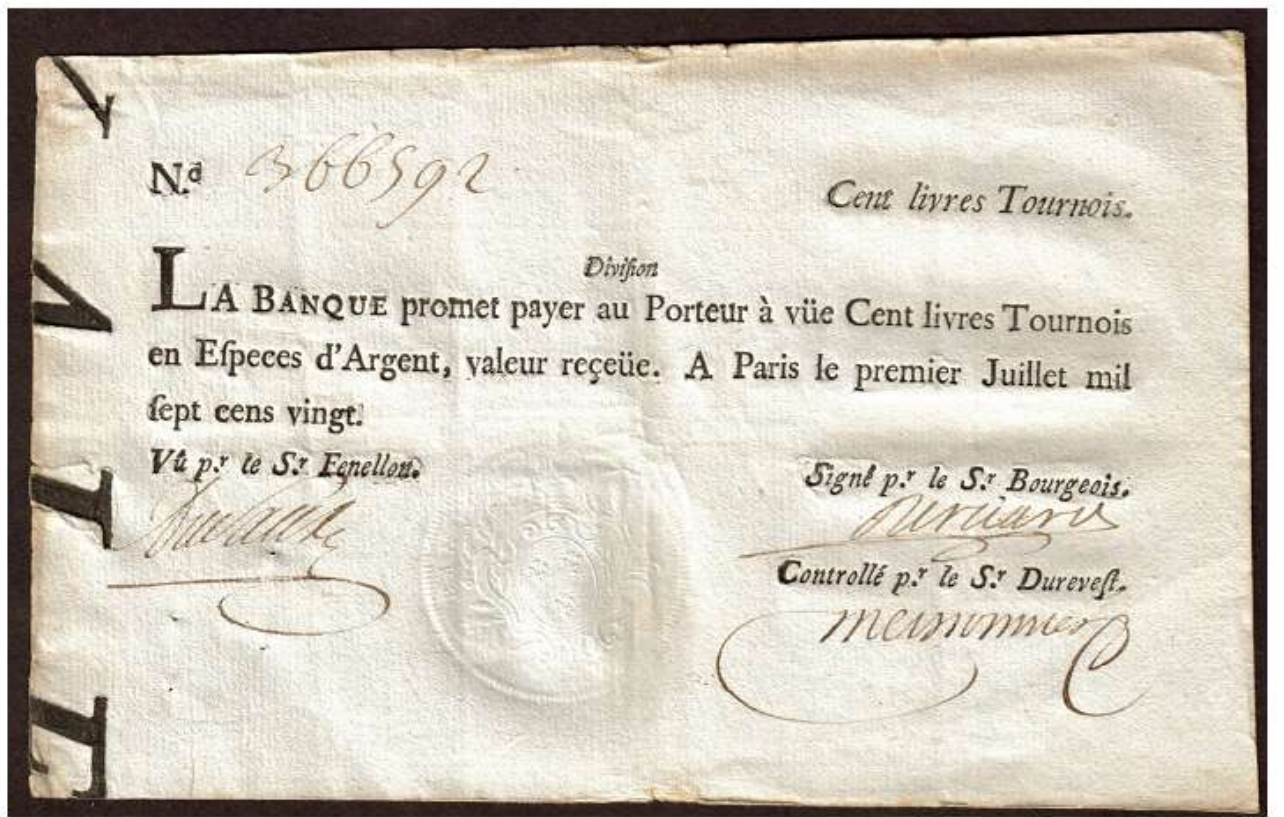 N.d 366592
Cent livres Tournois.
Diviſion
LA BANQUE promet payer au Porteur à vüe Cent livres Tournois
en Eſpeces d'Argent, valeur reçeüe. A Paris le premier Juillet mil
ſept cens vingt.
Vû p.r le S.r Fenellon.
Signé p.r le S.r Bourgeois.
Controllé p.r le S.r Dureveſt.